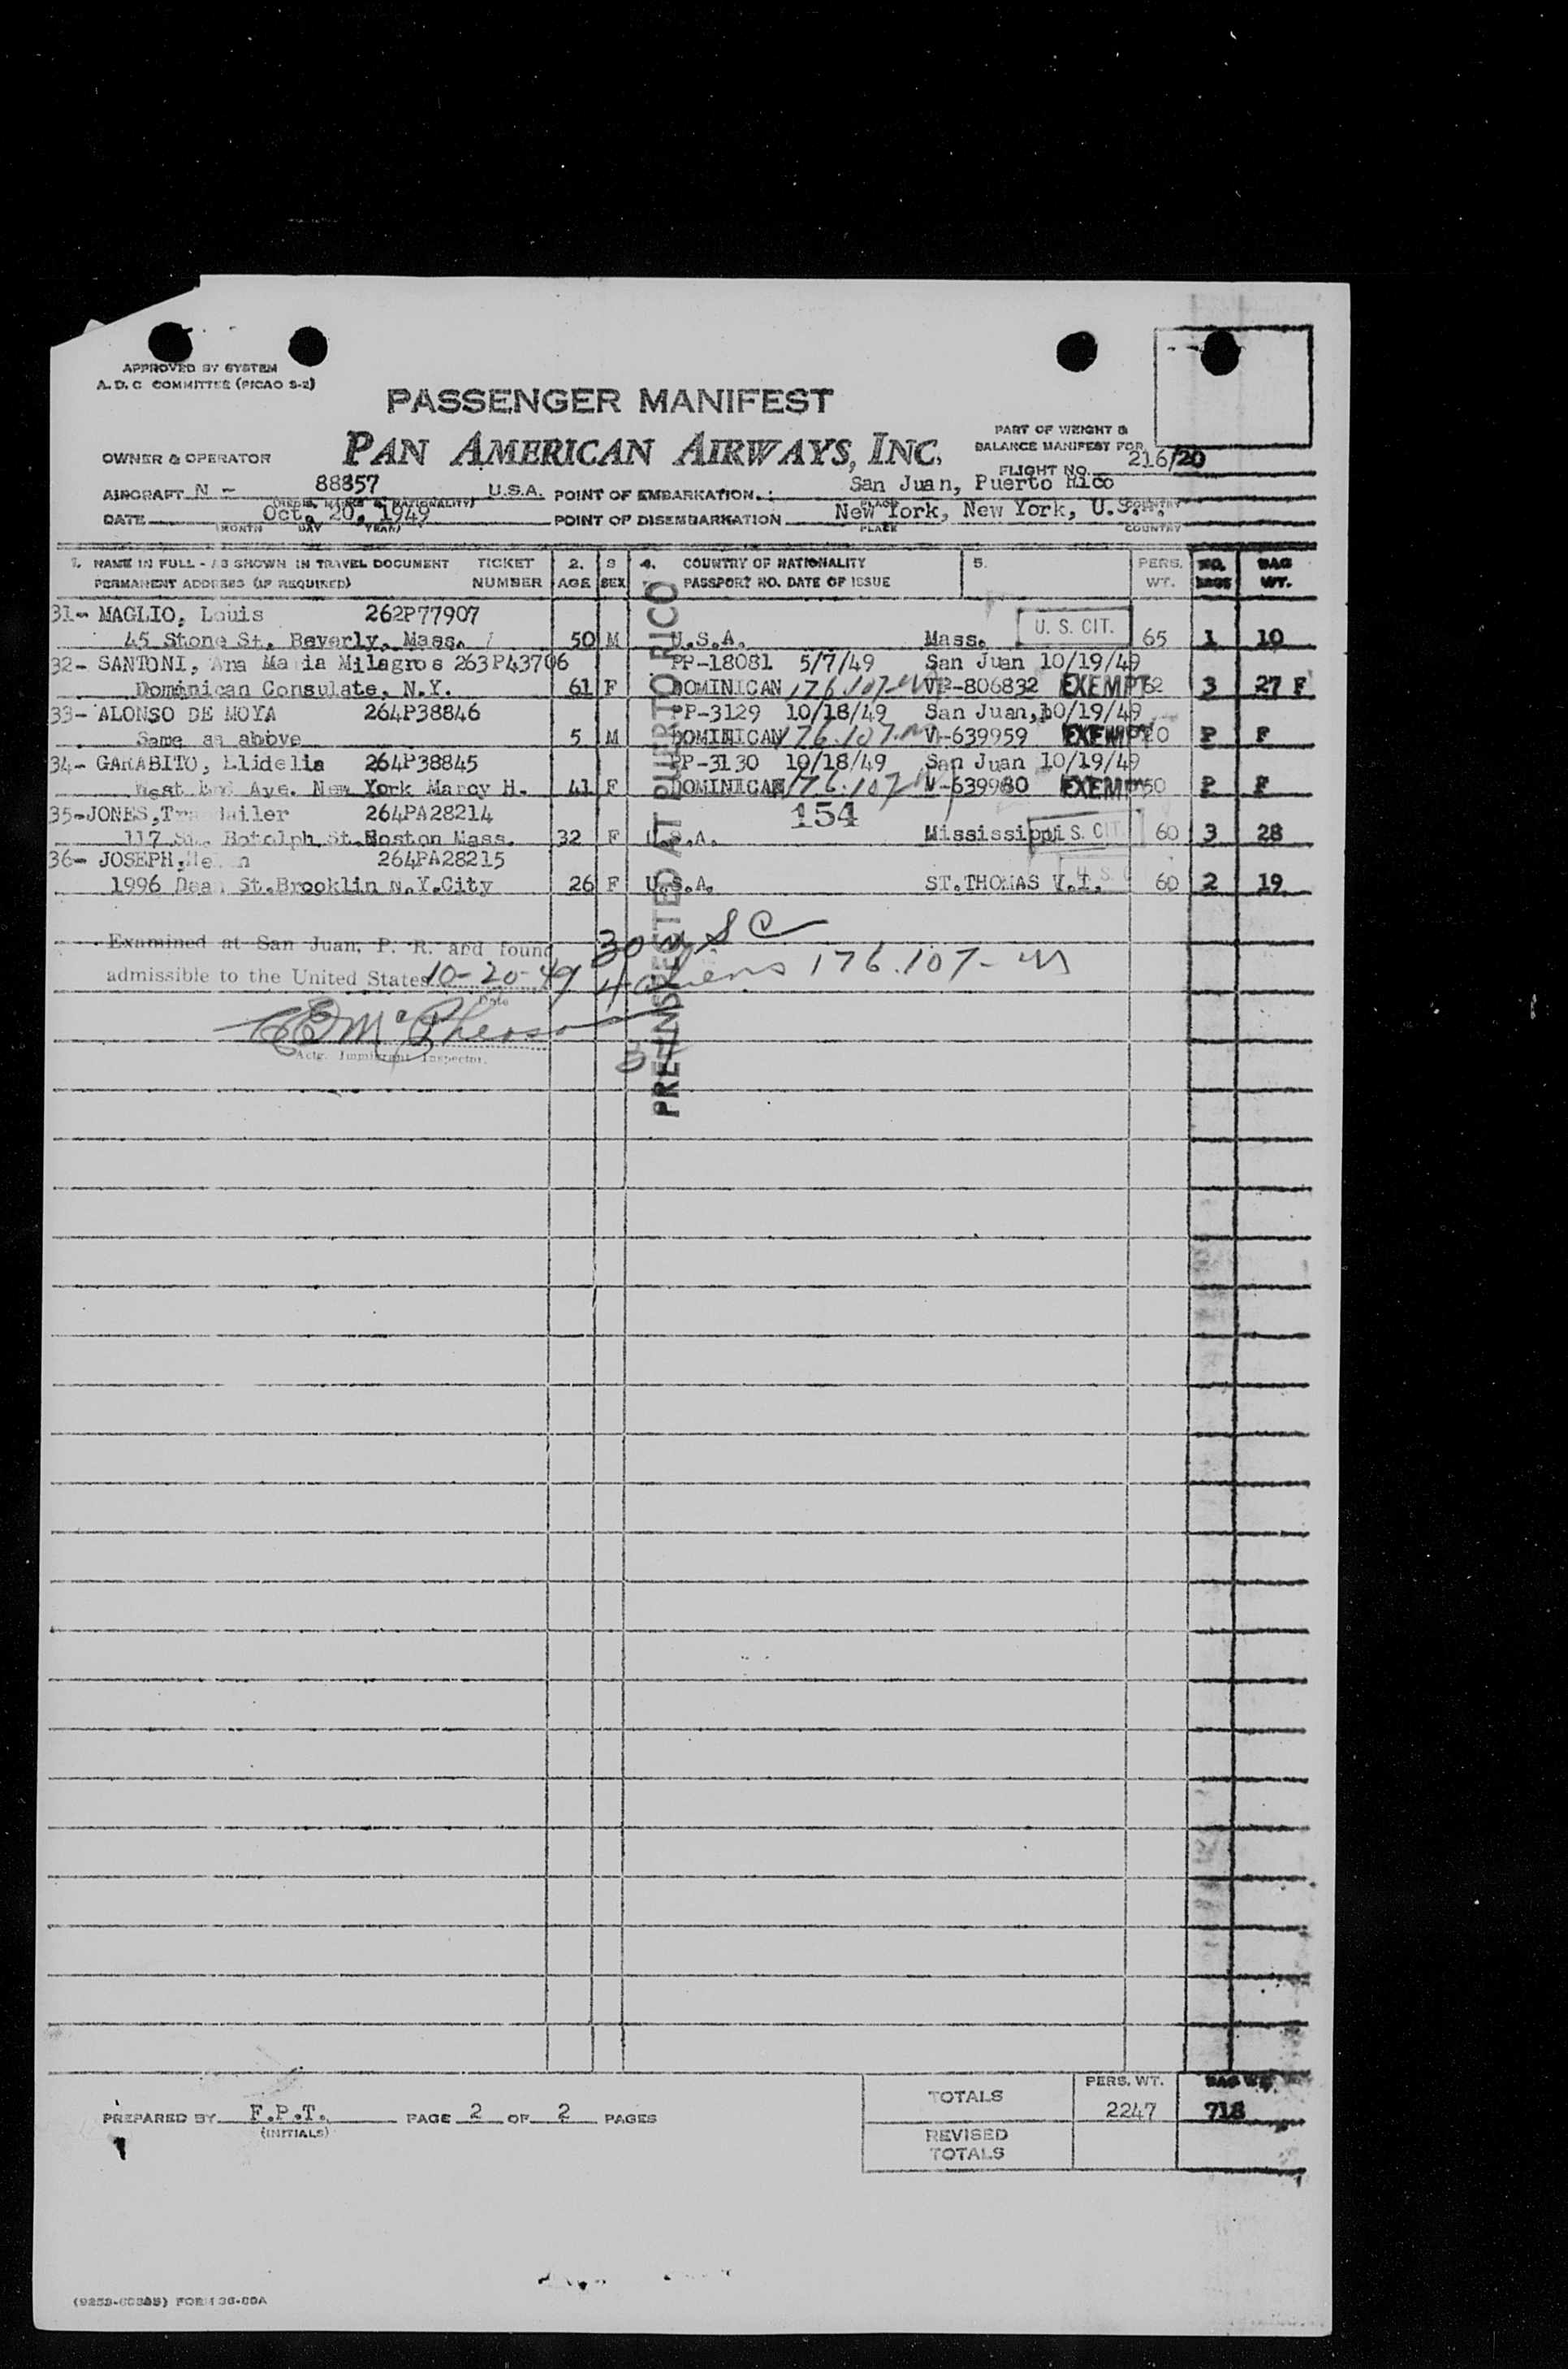 APPROVED BY SYSTEM
A.D.C COMMITTEE (PICAO S-2)
PASSENGER MANIFEST
PART OF WEIGHT &
BALANCE MANIFEST FOR
OWNER & OPERATOR PAN AMERICAN AIRWAYS, INC.
FLIGHT NO. 216/20
AIRCRAFT N - 88857 U.S.A. POINT OF EMBARKATION San Juan, Puerto Rico
DATE Oct. 20, 1949 POINT OF DISEMBARKATION New York, New York, U.S.A.
(MONTH DAY YEAR) PLACE COUNTRY
1. NAME IN FULL - AS SHOWN IN TRAVEL DOCUMENT TICKET 2. 3 4. COUNTRY OF NATIONALITY 5. PERS. NO. BAG
PERMANENT ADDRESS (IF REQUIRED) NUMBER AGE SEX PASSPORT NO. DATE OF ISSUE WT. BAGS WT.
31- MAGLIO, Louis 262P77907
45 Stone St. Beverly, Mass. 50 M U.S.A. Mass. U. S. CIT. 65 1 10
32- SANTONI, Ana Maria Milagros 263P43706 PP-18081 5/7/49 San Juan 10/19/49
Dominican Consulate, N.Y. 61 F DOMINICAN 176.107 VP-806832 EXEMPT 62 3 27 F
33- ALONSO DE MOYA 264P38846 PP-3129 10/18/49 San Juan, 10/19/49
Same as above 5 M DOMINICAN 176.107 V-639959 EXEMPT P F
34- GARABITO, Elidelia 264P38845 PP-3130 10/18/49 San Juan 10/19/49
West End Ave. New York Marcy H. 41 F DOMINICAN 176.107 V-639980 EXEMPT 50 P F
154
35-JONES, 264PA28214
117 St. Botolph St. Boston Mass. 32 F U.S.A. Mississippi U. S. CIT. 60 3 28
36- JOSEPH, 264PA28215
1996 Dean St. Brooklin N.Y.City 26 F U.S.A. ST.THOMAS V.I. U. S. C 60 2 19
PRE-INSPECTED AT PUERTO RICO
Examined at San Juan, P. R. and found
admissible to the United States 10-20-49
Date
30 USC
4 aliens 176.107-
McPherson
Actg. Immigrant Inspector.
TOTALS PERS. WT. BAG WT.
2247 718
PREPARED BY F.P.T. PAGE 2 OF 2 PAGES
(INITIALS)
REVISED
TOTALS
FORM 36-80A